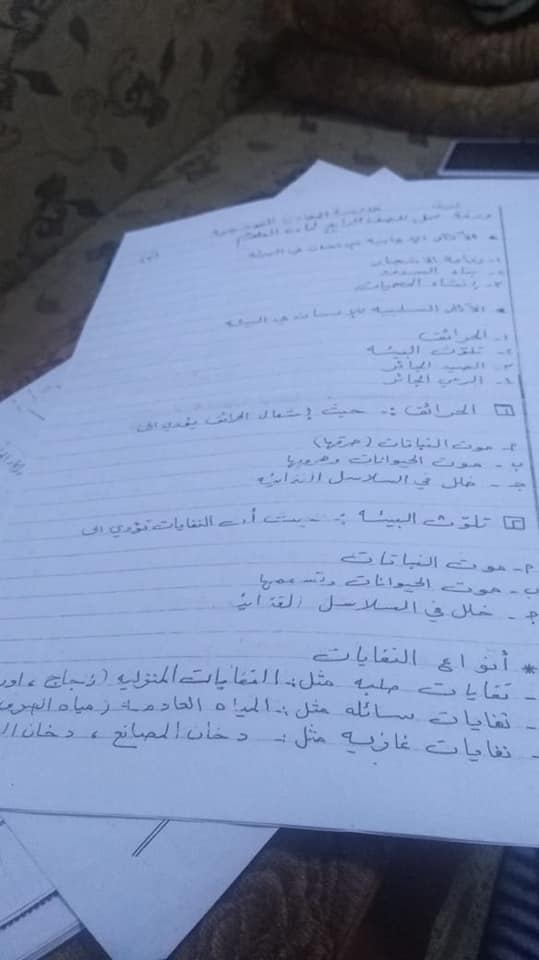 ورقة عمل للصف الرابع لمادة العلوم
* الآثار الإيجابية للإنسان في البيئة
١- زراعة الأشجار
٢- بناء السدود
٣- إنشاء المحميات
* الآثار السلبية للإنسان في البيئة
١- الحرائق
٢- تلوث البيئة
٣- الصيد الجائر
٤- الرعي الجائر
1 الحرائق :- حيث إشعال الحرائق يؤدي الى
أ- موت النباتات (حرقها)
ب- موت الحيوانات وهروبها
ج- خلل في السلاسل الغذائية
2 تلوث البيئة :- حيث أن النفايات تؤدي الى
أ- موت النباتات
ب- موت الحيوانات وتسممها
ج- خلل في السلاسل الغذائية
* أنواع النفايات
- نفايات صلبه مثل :- النفايات المنزليه (زجاج ،
- نفايات سائله مثل :- المياه العادمة (مياه
- نفايات غازيه مثل :- دخان المصانع ، دخان